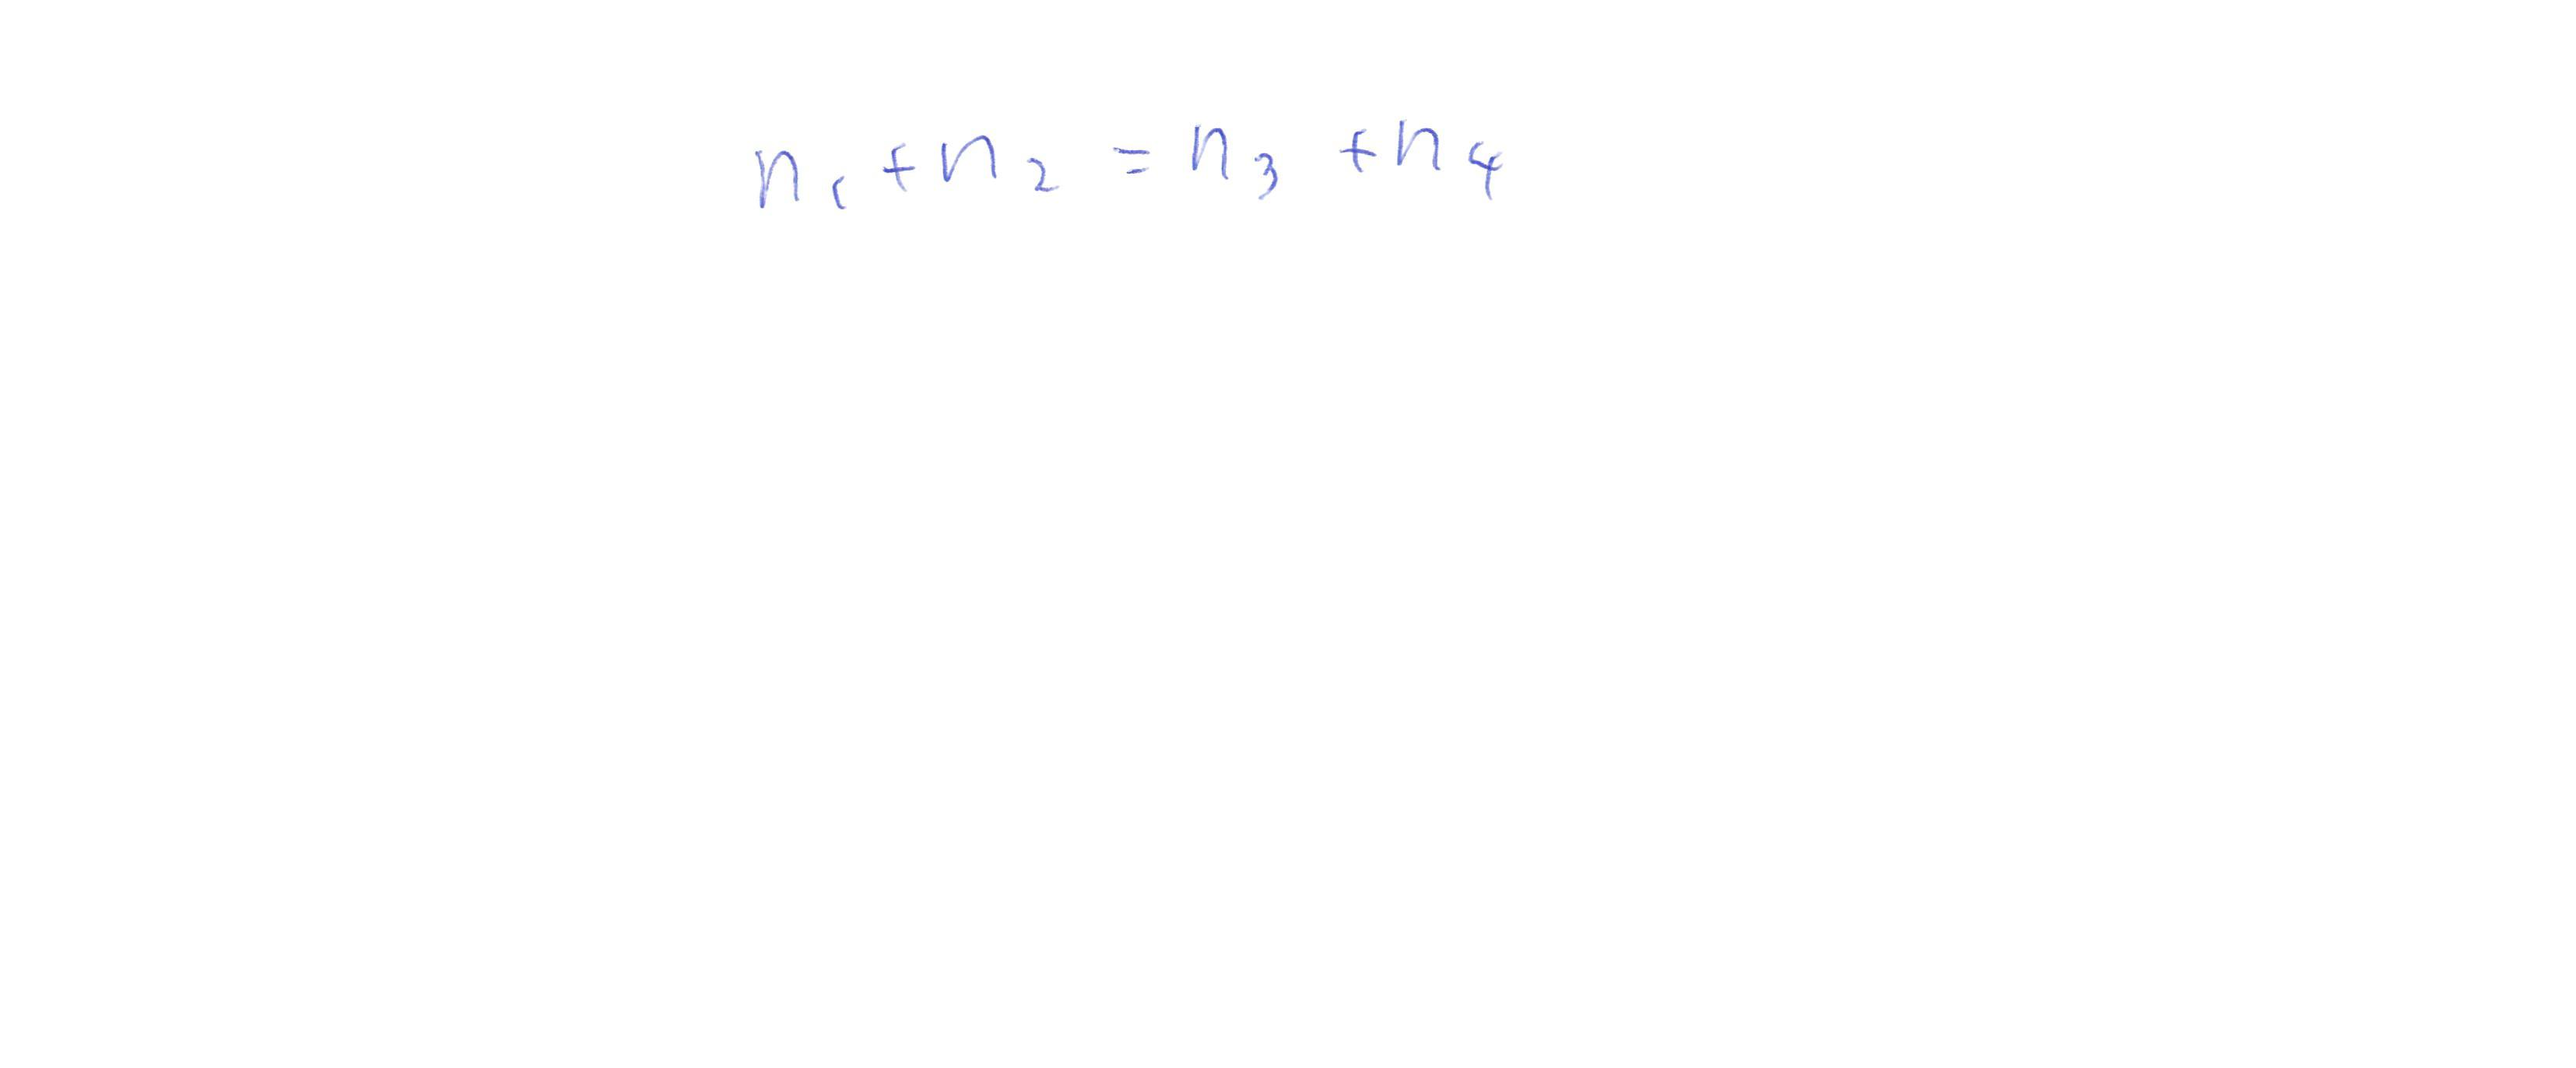 n₁ + n₂ = n₃ + n₄